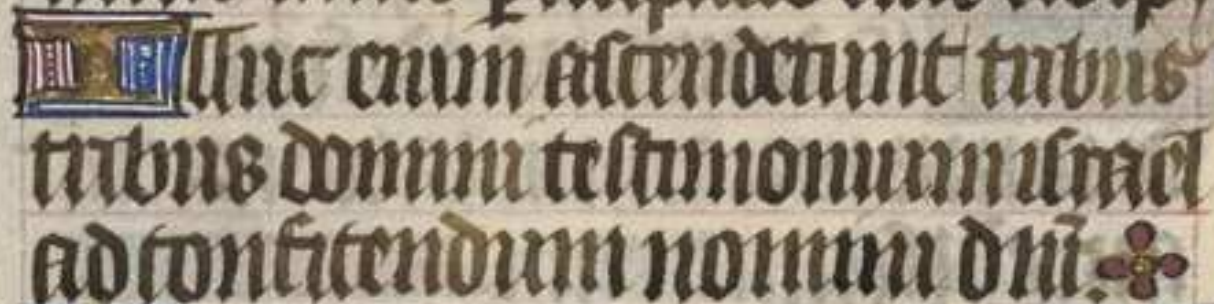 Illuc enim ascenderunt tribus
tribus domini testimonium israel
ad confitendum nomini dñi.